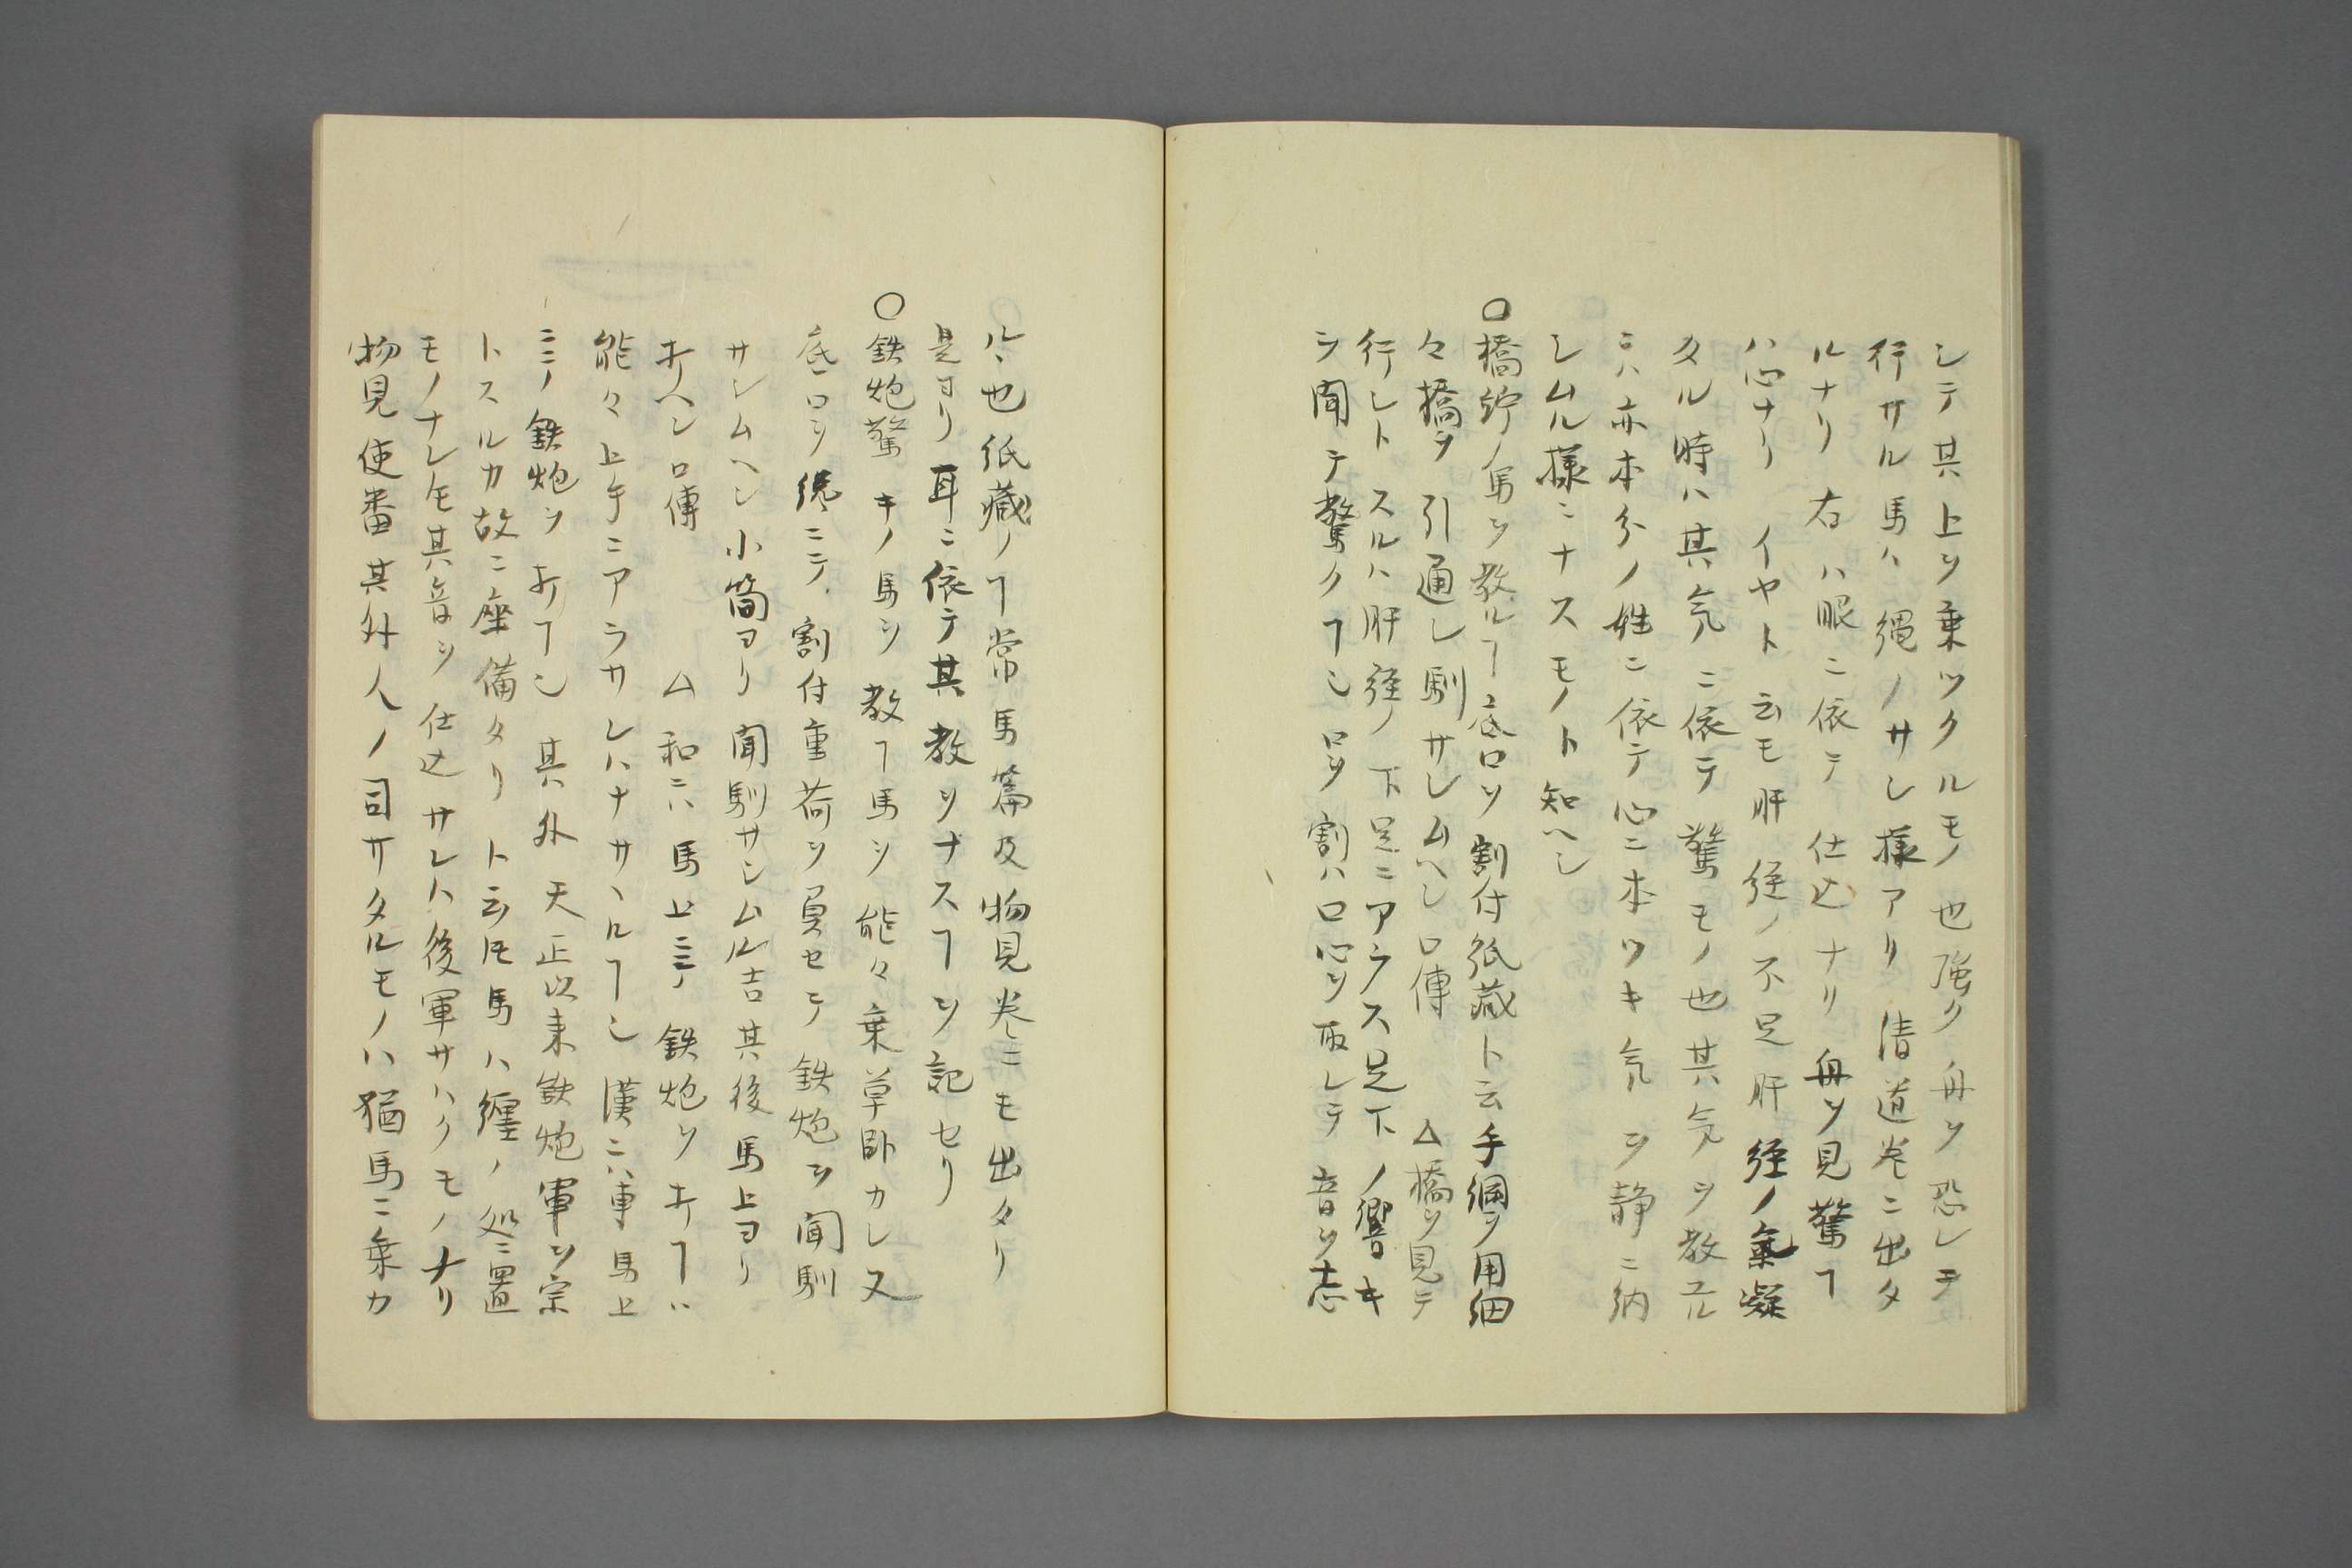 シテ其上ヲ乗ツクルモノ也強ク舟ヲ恐レテ
行サル馬ハ縄ノサシ様アリ清道巻ニ出タ
ルナリ右ハ眼ニ依テ仕込ナリ舟ヲ見驚ヿ
ハ心ナリイヤト云モ肝経ノ不足肝経ノ氣凝
タル時ハ其気ニ依テ驚モノ也其気ヲ教ユル
ニハ亦本分ノ姓ニ依テ心ニ本ツキ気ヲ静ニ納
シムル様ニナスモノト知ヘシ
〇橋ノ馬ヲ教ルヿ底口ヲ割付紙蔵ト云手綱ヲ用細
々橋ヲ引通シ馴サシムヘシ口傳 △橋ヲ見テ
行シトスルハ肝経ノ下足ニアラス足下ノ響キ
ヲ聞テ驚クヿシ口ヲ割ハ口心ヲ取レテ音ヲ志
ルヽ也紙蔵ノヿ常馬篇及物見巻ニモ出タリ
是ヨリ耳ニ依テ其教ヲナスヿヲ記セリ
〇鉄炮驚キノ馬ヲ教ヿ馬ヲ能々乗草臥カシ又
底口ヲ続ニテ割付重荷ヲ負セテ鉄炮ヲ聞馴
サシムヘシ小筒ヨリ聞馴サシムル吉其後馬上ヨリ
打ヘシ口傳 △和ニハ馬上ニテ鉄炮ヲ打ヿハ
能々上手ニアラサレハナサヽルヿシ漢ニハ専馬上
ニテノ鉄炮ヲ打ヿシ其外天正以来鉄炮軍ヲ宗
トスルカ故ニ座備タリト云圧馬ハ纏ノ処ニ置
モノナレ圧其音ヲ仕込サレハ後軍サハクモノナリ
物見使番其外人ノ司サタルモノハ猶馬ニ乗カ